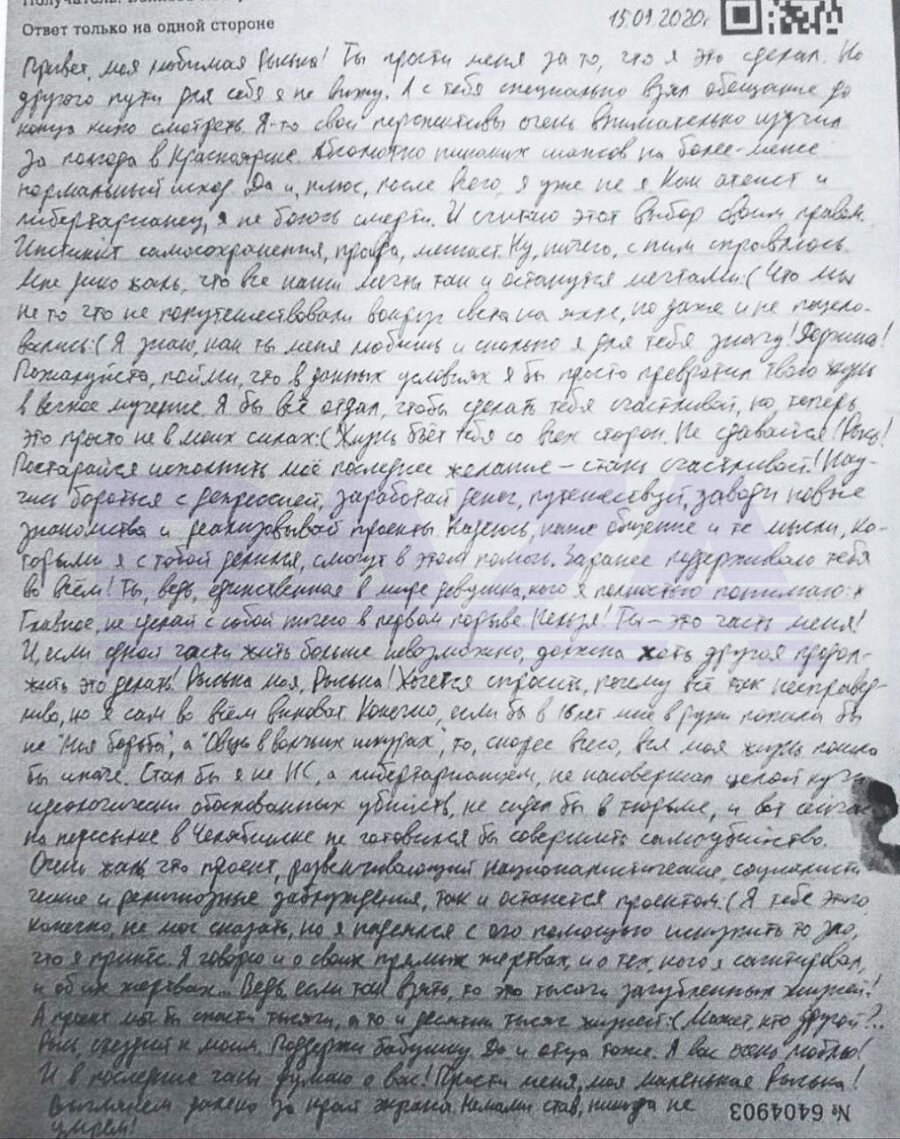 Получатель:
Ответ только на одной стороне
15.09.2020г
Привет, моя любимая Рыська! Ты прости меня за то, что я это сделал. Но
другого пути для себя я не вижу. А с тебя специально взял обещание до
конца кино смотреть. Я-то свои перспективы очень внимательно изучил
за полгода в Красноярске. Абсолютно никаких шансов на более-менее
нормальный исход. Да и, плюс, после всего, я уже не я. Как атеист и
либертарианец, я не боюсь смерти. И считаю этот выбор своим правом.
Инстинкт самосохранения, правда, мешает. Ну, ничего, с ним справлюсь.
Мне дико жаль, что все наши мечты так и останутся мечтами:( Что мы
не то что не попутешествовали вокруг света на яхте, но даже и не поцело-
вались:( Я знаю, как ты меня любишь и сколько я для тебя значу!
Пожалуйста, пойми, что в данных условиях я бы просто превратил твою жизнь
в вечное мучение. Я бы всё отдал, чтобы сделать тебя счастливой, но теперь
это просто не в моих силах:( Жизнь бьёт тебя со всех сторон. Не сдавайся! Рысь!
Постарайся исполнить моё последнее желание – стань счастливой! Нау-
чись бороться с депрессией, заработай денег, путешествуй, заводи новые
знакомства и реализовывай проекты. Надеюсь, наше общение и те мысли, ко-
торыми я с тобой делился, смогут в этом помочь. Заранее поддерживаю тебя
во всём! Ты, ведь, единственная в мире девушка, кого я полностью понимаю:*
Главное, не сделай с собой ничего в первом порыве. Нельзя! Ты – это часть меня!
И, если одной части жить больше невозможно, должна хоть другая продол-
жить это делать! Рыська моя, Рыська! Хочется спросить, почему всё так несправед-
ливо, но я сам во всём виноват. Конечно, если бы в 16 лет мне в руки попала бы
не "Моя борьба", а "Овцы в волчьих шкурах", то, скорее всего, вся моя жизнь пошла
бы иначе. Стал бы я не НС, а либертарианцем, не насовершал целой кучи
идеологически обоснованных убийств, не сидел бы в тюрьме, и вот сейчас
на пересылке в Челябинске не готовился бы совершить самоубийство.
Очень жаль что проект, развенчивающий националистические, социалисти-
ческие и религиозные заблуждения, так и останется проектом:( Я тебе этого,
конечно, не мог сказать, но я надеялся с его помощью искупить то зло,
что я принёс. Я говорю и о своих прямых жертвах, и о тех, кого я сагитировал,
и об их жертвах... Ведь, если так взять, то это тысячи загубленных жизней!
А проект мог бы спасти тысячи, а то и десятки тысяч жизней:( Может, кто другой?..
Рысь, съезди к моим. Поддержи бабушку. Да и отца тоже. Я вас очень люблю!
И в последние часы думаю о вас! Прости меня, моя маленькая Рыська!
Выглянем далеко за край экрана. Нами став, никогда не
умрем!
№ 6404903
BAZA